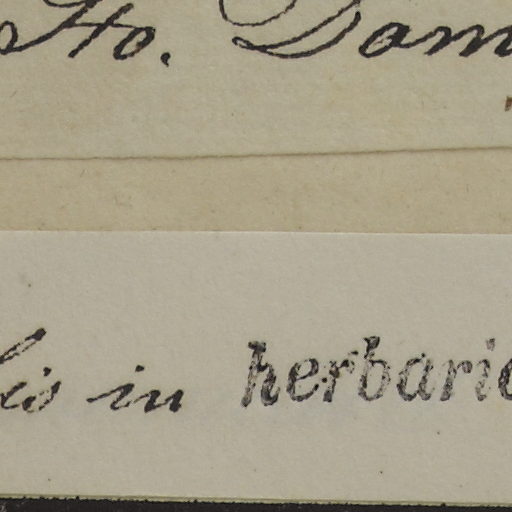 Sto. Dom
in herbario